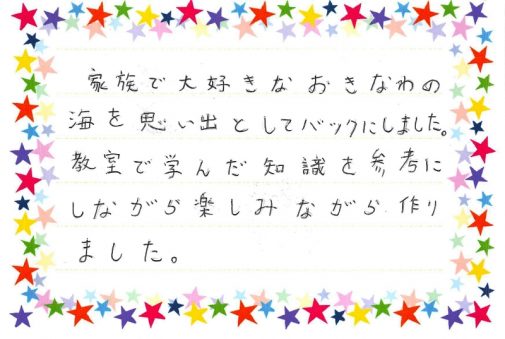 家族で大好きなおきなわの
海を思い出としてバックにしました。
教室で学んだ知識を参考に
しながら楽しみながら作り
ました。